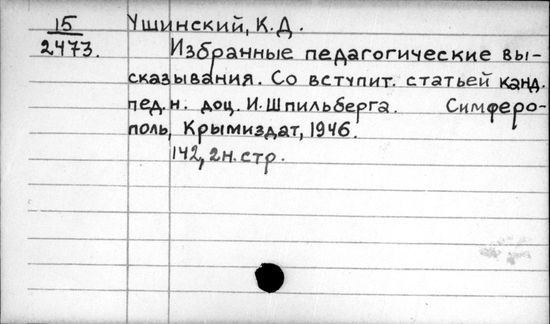 15 Ушинский, К.Д.
2473. Избранные педагогические вы-
сказывания. Со вступит. статьей канд.
пед.н. доц. И. Шпильберга. Симферо-
поль, Крымиздат, 1946.
142, 2н. стр.